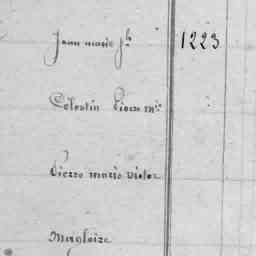 Jean marie jh 1223
Célestin Pierre mie
Pierre marie victor
Magloire